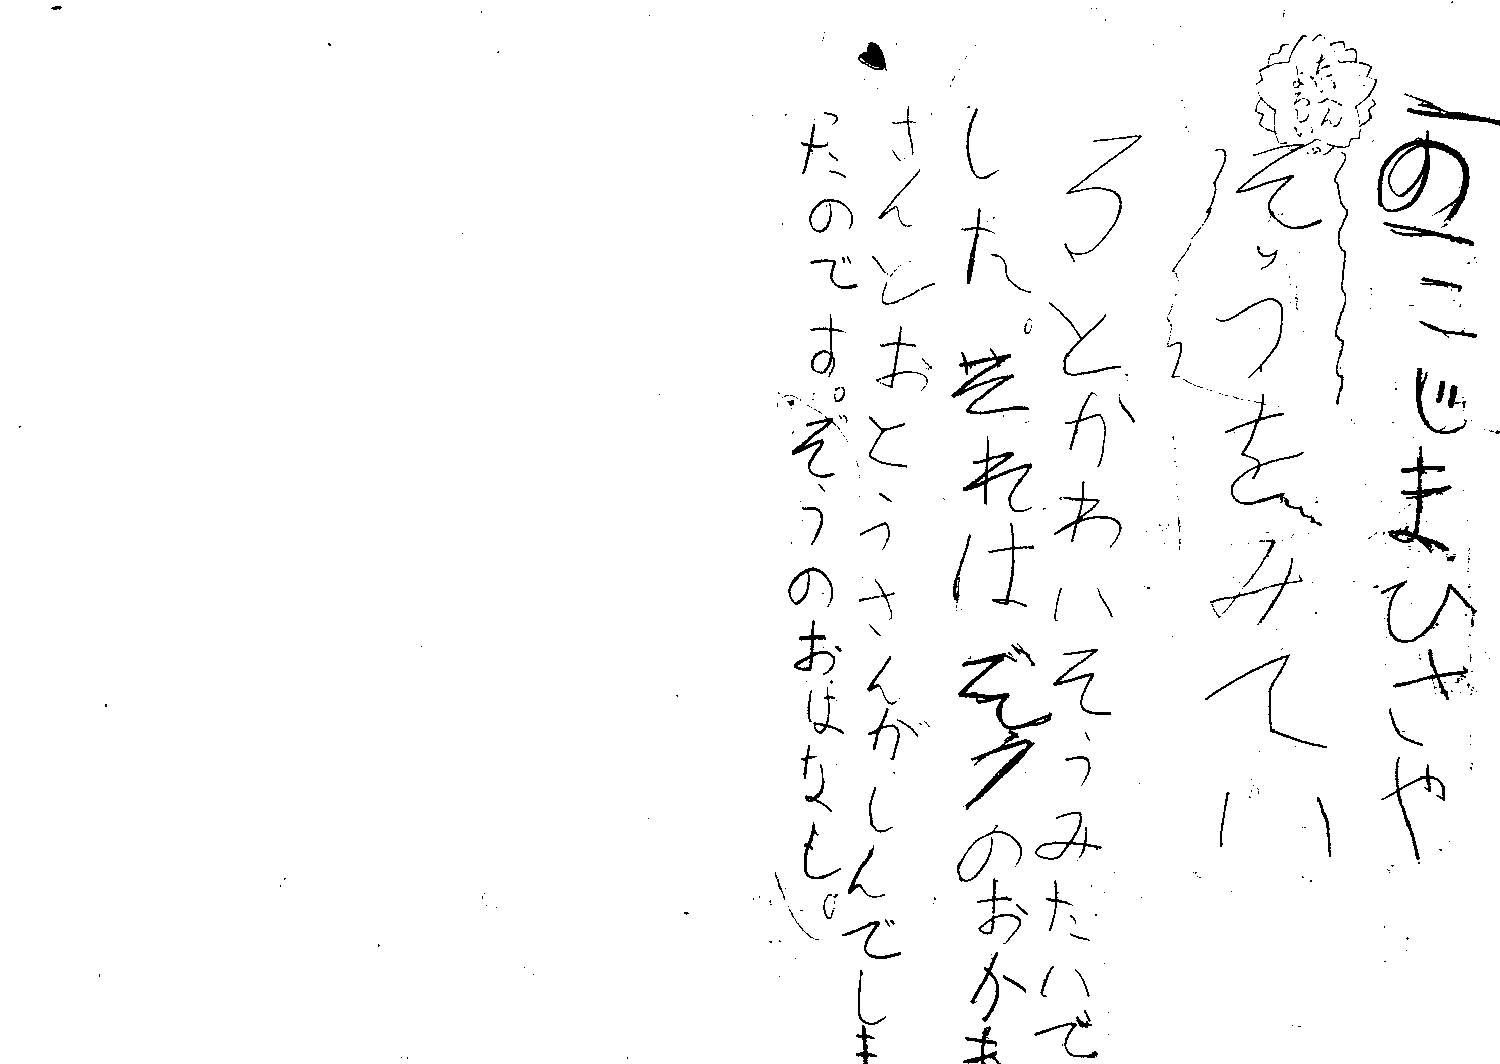 一の二 こじまひさや
たいへんよろしい
ぞうをみてい
ろとかわいそうみたいで
した。それはぞうのおかま
さんとおとうさんがしんでしま
ったのです。ぞうのおはなし。